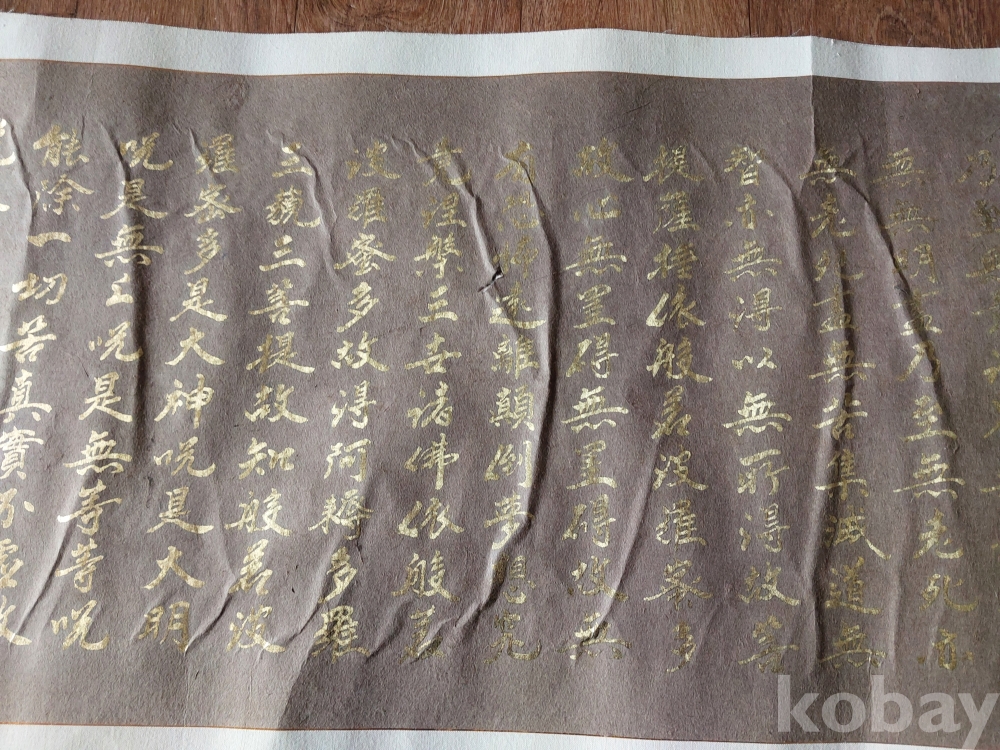 無無明盡乃至無老死亦
無老死盡無苦集滅道無
智亦無得以無所得故菩
提薩埵依般若波羅蜜多
故心無罣碍無罣碍故無
有恐怖遠離顛倒夢想究
竟涅槃三世諸佛依般若
波羅蜜多故得阿耨多羅
三藐三菩提故知般若波
羅蜜多是大神呪是大明
呪是無上呪是無等等呪
能除一切苦真實不虛故
kobay